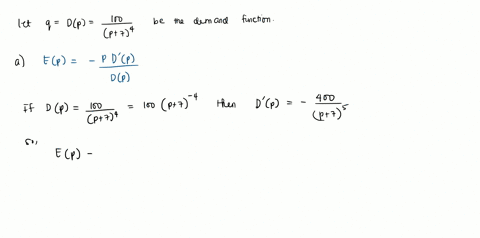 let q = D(p) = 100/(p+7)^4 be the demand function.
a) E(p) = - p D'(p)/D(p)
If D(p) = 100/(p+7)^4 = 100 (p+7)^-4 then D'(p) = - 400/(p+7)^5
so,
E(p) -